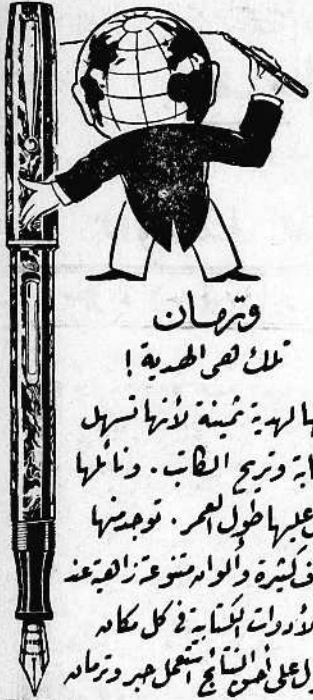 وترمان
تلك هى الهدية !
لهدية ثمينة لأنها تسهل
وتريح الكاتب . ونائلها
عليها طول العمر . توجد منها
كثيرة وألوان متنوعة زاهية عند
الأدوات الكتابية فى كل مكان
على أحسن النتائج استعمل حبر وترمان